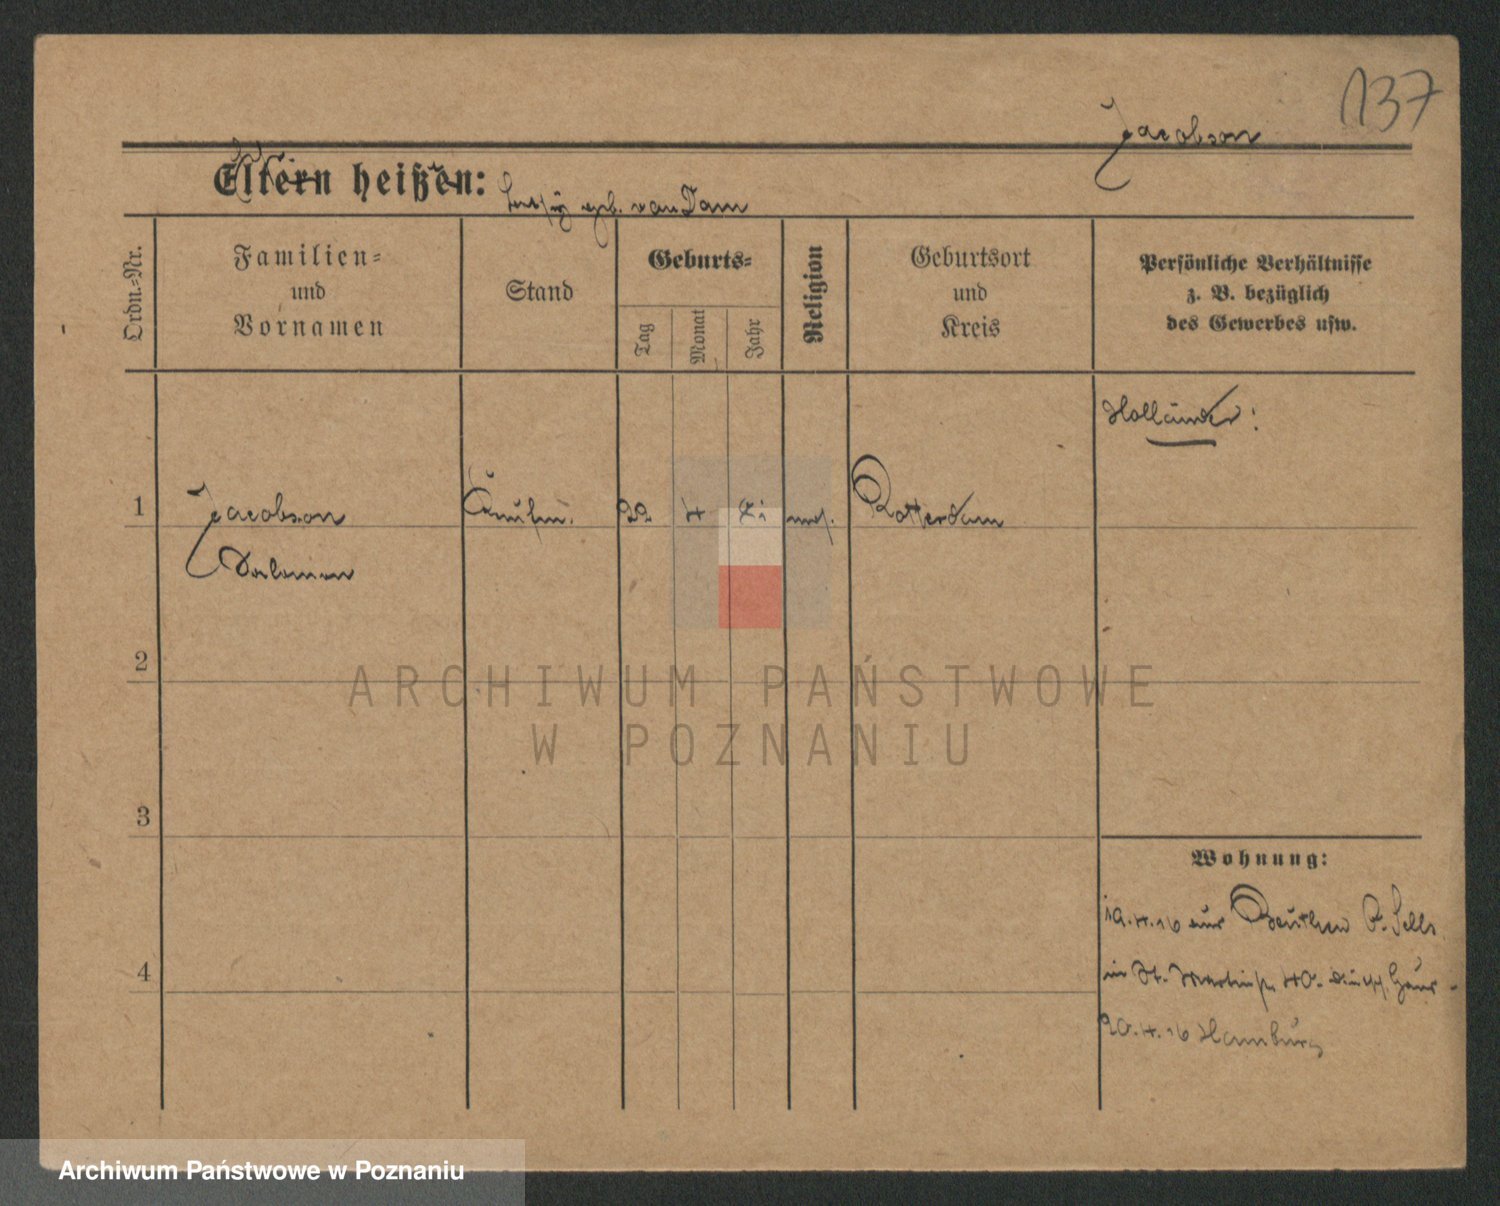 137
Jacobson
Eltern heißen:
geb. van Dam
Ordn.=Nr.
Familien=
und
Vornamen
Stand
Geburts=
Tag
Monat
Jahr
Religion
Geburtsort
und
Kreis
Persönliche Verhältnisse
z. B. bezüglich
des Gewerbes usw.
Holländer:
1
Jacobson
22
4
mos.
Rotterdam
Salomon
2
ARCHIWUM PAŃSTWOWE
W POZNANIU
3
Wohnung:
19.4.16 aus Beuthen
4
in St. Martinstr. 40.
20.4.16 Hamburg
Archiwum Państwowe w Poznaniu